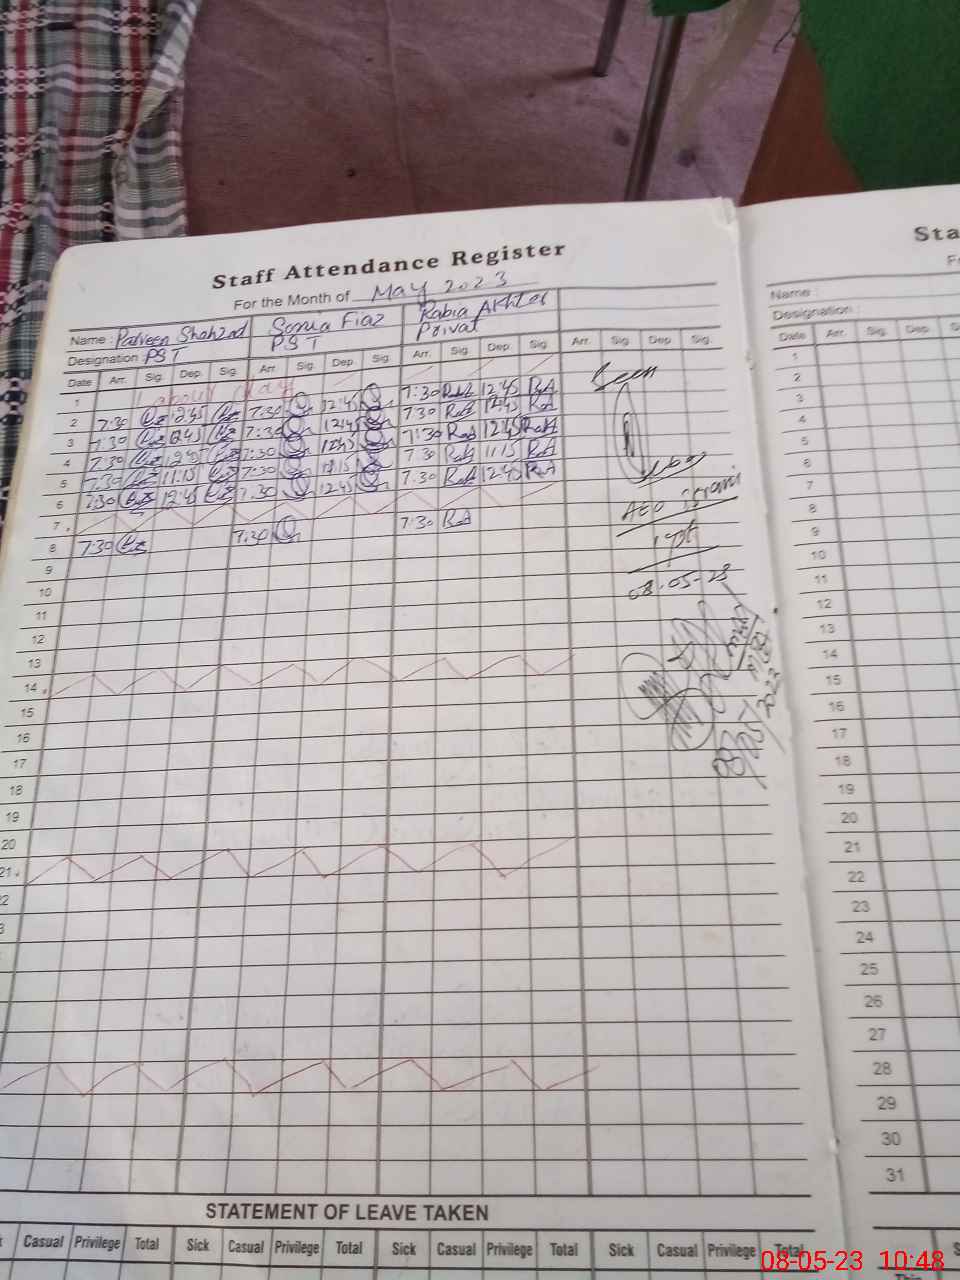 Staff Attendance Register
For the Month of May 2023
Name : Parveen Shahzad Sonia Fiaz Rabia Akhtar
Designation : PST PST Privat
Date Arr. Sig. Dep. Sig. Arr. Sig. Dep. Sig. Arr. Sig. Dep. Sig. Arr. Sig. Dep. Sig.
1 Labour Day
2 7:30 12:45 7:30 12:45 7:30 RA 12:45 RA
3 7:30 12:45 7:30 12:45 7:30 RA 12:45 RA
4 7:30 12:45 7:30 12:45 7:30 RA 12:45 RA
5 7:30 11:15 7:30 11:15 7:30 RA 11:15 RA
6 7:30 12:45 7:30 12:45 7:30 RA 12:45 RA
7
8 7:30 7:30 7:30 RA
9
10
11
12
13
14
15
16
17
18
19
20
21
22
3
Seen
AEO
08-05-23
STATEMENT OF LEAVE TAKEN
Casual Privilege Total Sick Casual Privilege Total Sick Casual Privilege Total Sick Casual Privilege Total
Sta
F
Name :
Designation :
Date Arr. Sig. Dep. S
1
2
3
4
5
6
7
8
9
10
11
12
13
14
15
16
17
18
19
20
21
22
23
24
25
26
27
28
29
30
31
08-05-23 10:48